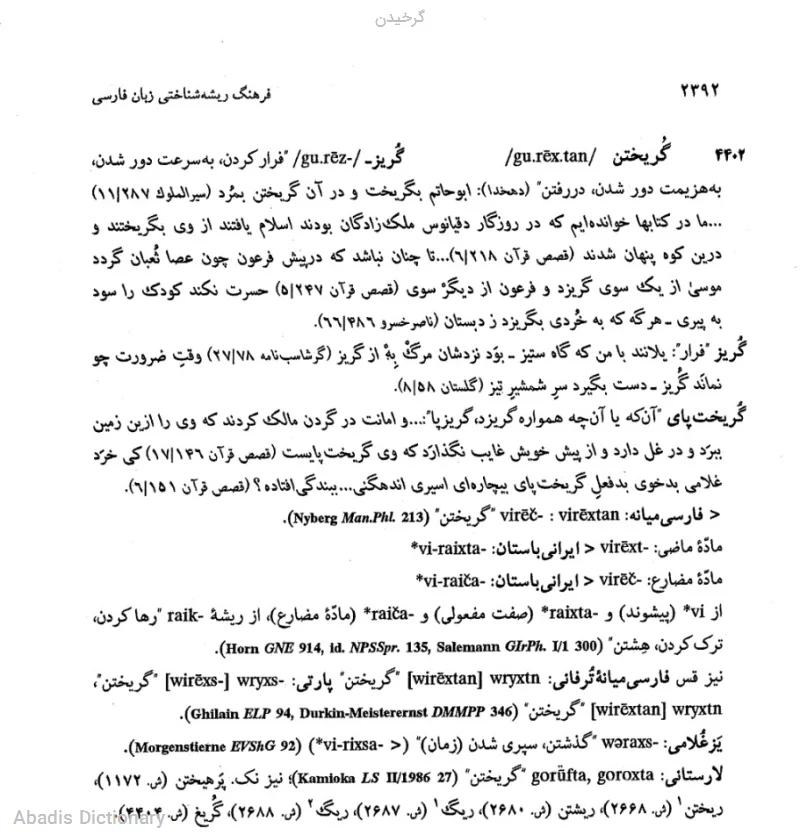 گرخیدن
۲۳۹۲ فرهنگ ریشه‌شناختی زبان فارسی
۴۴۰۲ گُریختن /gu.rēx.tan/ گُریز- /gu.rēz-/ "فرار کردن، به‌سرعت دور شدن،
به‌هزیمت دور شدن، دررفتن" (دهخدا): ابوحاتم بگریخت و در آن گریختن بمُرد (سیرالملوک ۱۱/۲۸۷)
...ما در کتابها خوانده‌ایم که در روزگار دقیانوس ملک‌زادگان بودند اسلام یافتند از وی بگریختند و
درین کوه پنهان شدند (قصص قرآن ۶/۲۱۸)...تا چنان نباشد که درپیش فرعون چون عصا ثُعبان گردد
موسیٰ از یک سوی گریزد و فرعون از دیگرْ سوی (قصص قرآن ۵/۲۴۷) حسرت نکند کودک را سود
به پیری ـ هرگه که به خُردی بگریزد ز دبستان (ناصرخسرو ۶۶/۴۸۶).
گُریز "فرار": یلانند با من که گاه ستیز ـ بوَد نزدشان مرگ بِهْ از گریز (گرشاسب‌نامه ۲۷/۷۸) وقتِ ضرورت چو
نمائَد گُریز ـ دست بگیرد سرِ شمشیرِ تیز (گلستان ۸/۵۸).
گُریخت‌پای "آن‌که یا آن‌چه همواره گریزد، گریزپا":...و امانت در گردن مالک کردند که وی را ازین زمین
ببرَد و در غل دارد و از پیش خویش غایب نگذارَد که وی گریخت‌پایست (قصص قرآن ۱۷/۱۴۶) کی خرَد
غلامی بدخوی بدفعلِ گریخت‌پای بیچاره‌ای اسیری اندهگنی...ببندگی‌افتاده؟ (قصص قرآن ۶/۱۵۱).
< فارسی‌میانه: virēxtan : virēč- "گریختن" (Nyberg Man.Phl. 213).
مادّهٔ ماضی: virēxt- < ایرانی‌باستان: *vi-raixta-
مادّهٔ مضارع: virēč- < ایرانی‌باستان: *vi-raiča-
از *vi (پیشوند) و *raixta- (صفت مفعولی) و *raiča- (مادّهٔ مضارع)، از ریشهٔ raik- "رها کردن،
ترک کردن، هِشتن" (Horn GNE 914, id. NPSSpr. 135, Salemann GIrPh. I/1 300).
نیز قس فارسی‌میانهٔ تُرفانی: wryxtn [wirēxtan] "گریختن" پارتی: wryxs- [wirēxs-] "گریختن"،
wryxtn [wirēxtan] "گریختن" (Ghilain ELP 94, Durkin-Meisterernst DMMPP 346).
یَزغُلامی: wəraxs- "گذشتن، سپری شدن (زمان)" (< *vi-rixsa-) (Morgenstierne EVShG 92).
لارستانی: gorüfta, goroxta "گریختن" (Kamioka LS II/1986 27)؛ نیز نک. پَرهیختن (ش. ۱۱۷۲)،
ریختن۱ (ش. ۲۶۶۸)، ریشتن (ش. ۲۶۸۰)، ریگ۱ (ش. ۲۶۸۷)، ریگ۲ (ش. ۲۶۸۸)، گُریغ (ش. ۴۴۰۴).
Abadis Dictionary